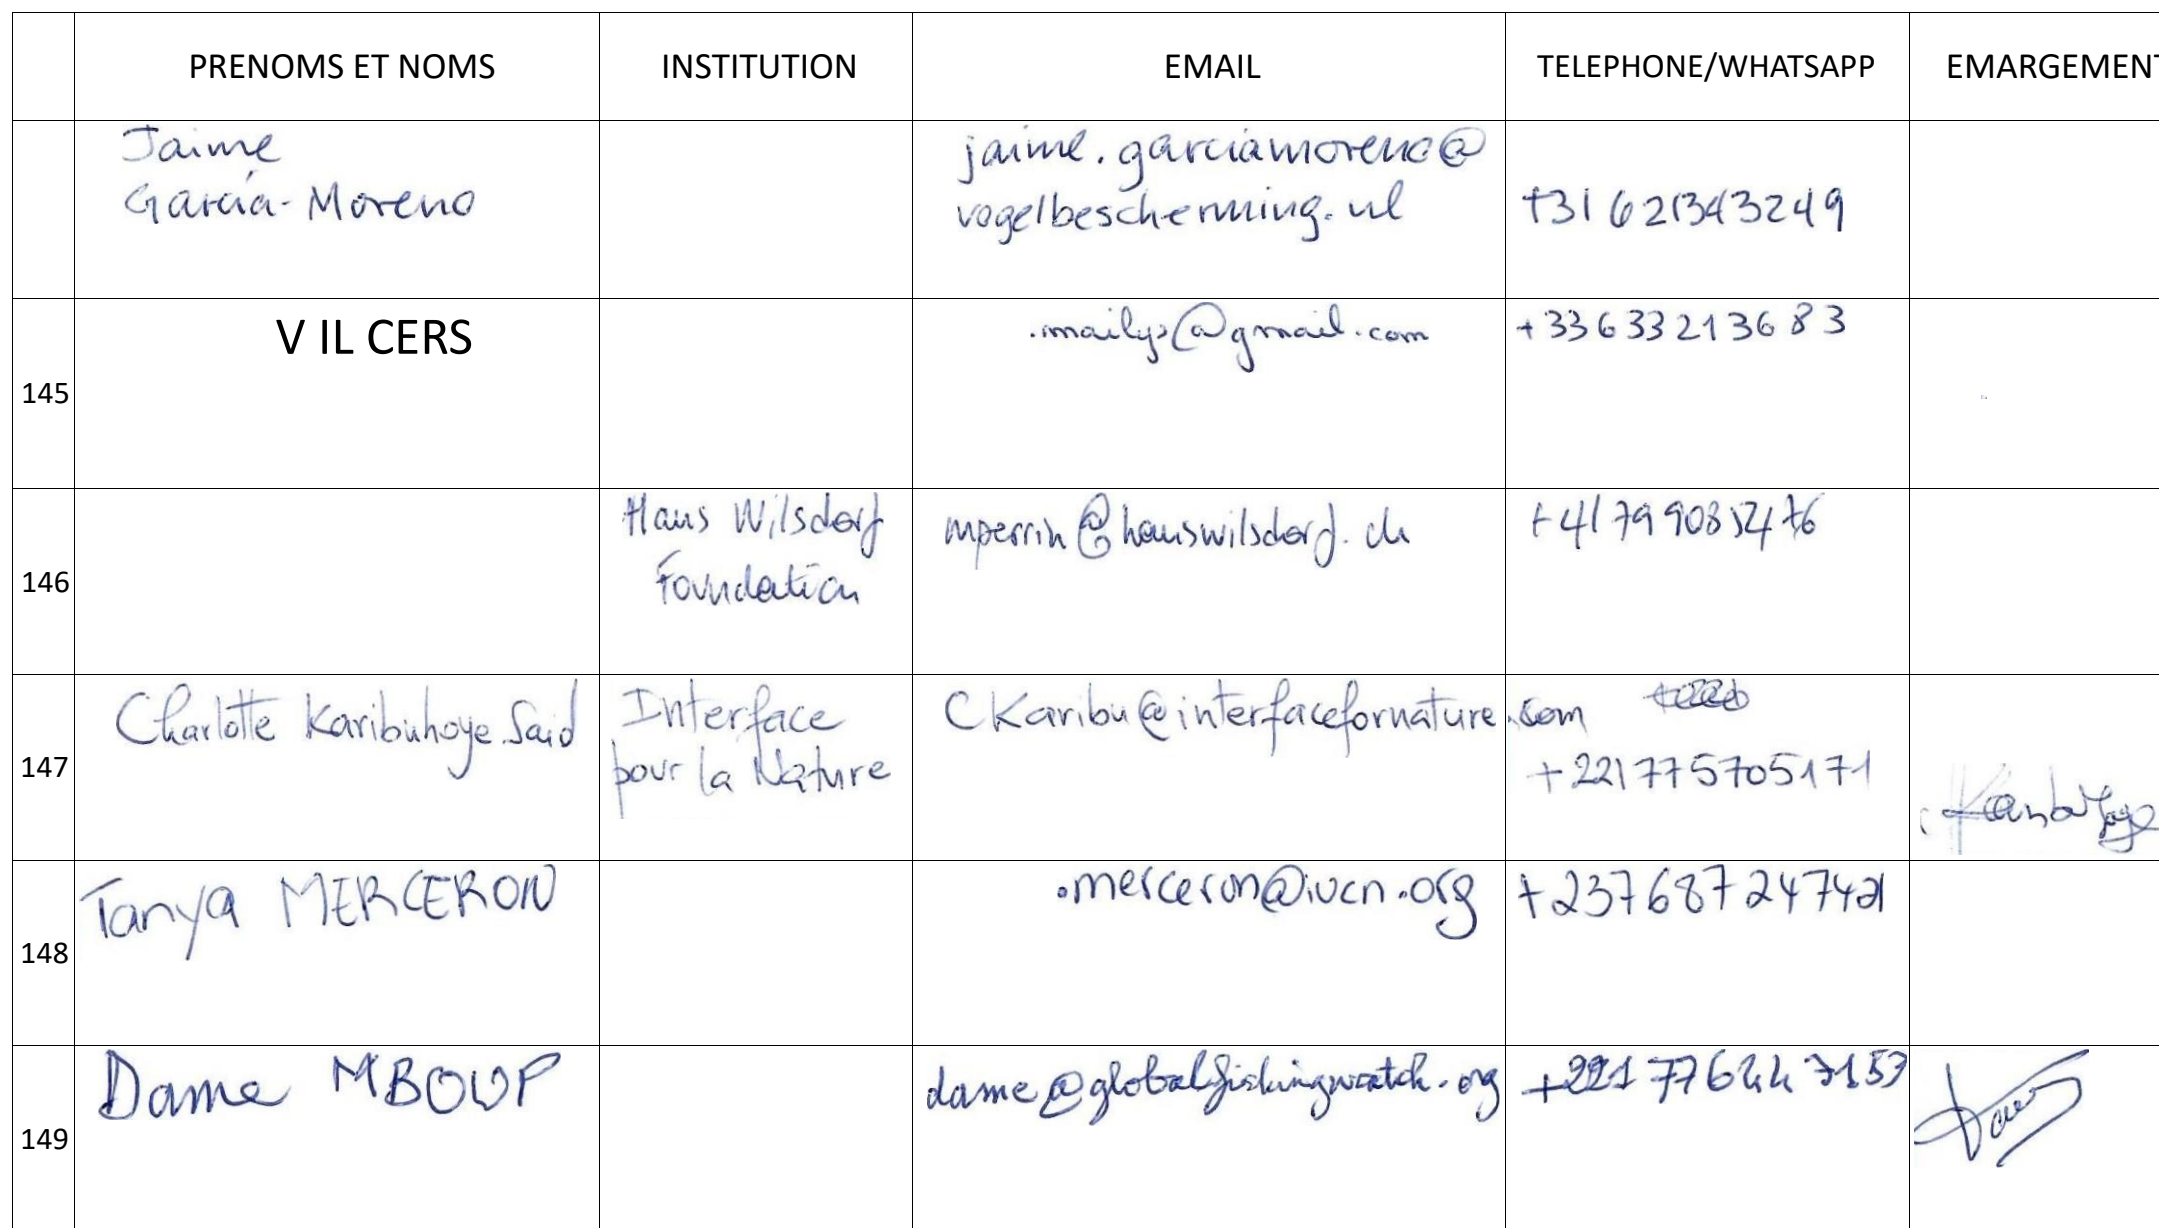 PRENOMS ET NOMS INSTITUTION EMAIL TELEPHONE/WHATSAPP EMARGEMENT
Jaime
García-Moreno
jaime.garciamoreno@
vogelbescherming.nl
+31 621343249
145
V IL CERS
.mailys@gmail.com
+33633213683
146
Hans Wilsdorf
Foundation
mperrin@hanswilsdorf.ch
147
Charlotte Karibuhoye Said
Interface
pour la Nature
CKaribu@interfacefornature.com
+221775705171
148
Tanya MERCERON
.merceron@iucn.org
149
Dame MBOUP
dame@globalfishingwatch.org